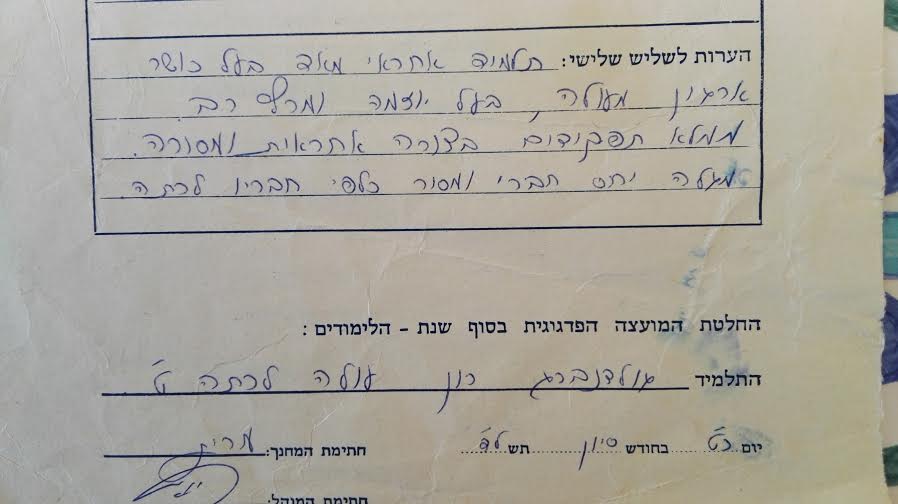 הערות לשליש שלישי: תלמיד אחראי מאד בעל כושר
ארגון מעולה, בעל יוזמה ומרץ רב
ממלא תפקידים בצורה אחראית ומסורה.
מגלה יחס חברי ומסור כלפי חבריו לכתה
החלטת המועצה הפדגוגית בסוף שנת - הלימודים :
התלמיד גולדנברג רון עולה לכתה ט'
יום כ"ט בחודש סיון תש ל"ה חתימת המחנך:
חתימת המנהל: